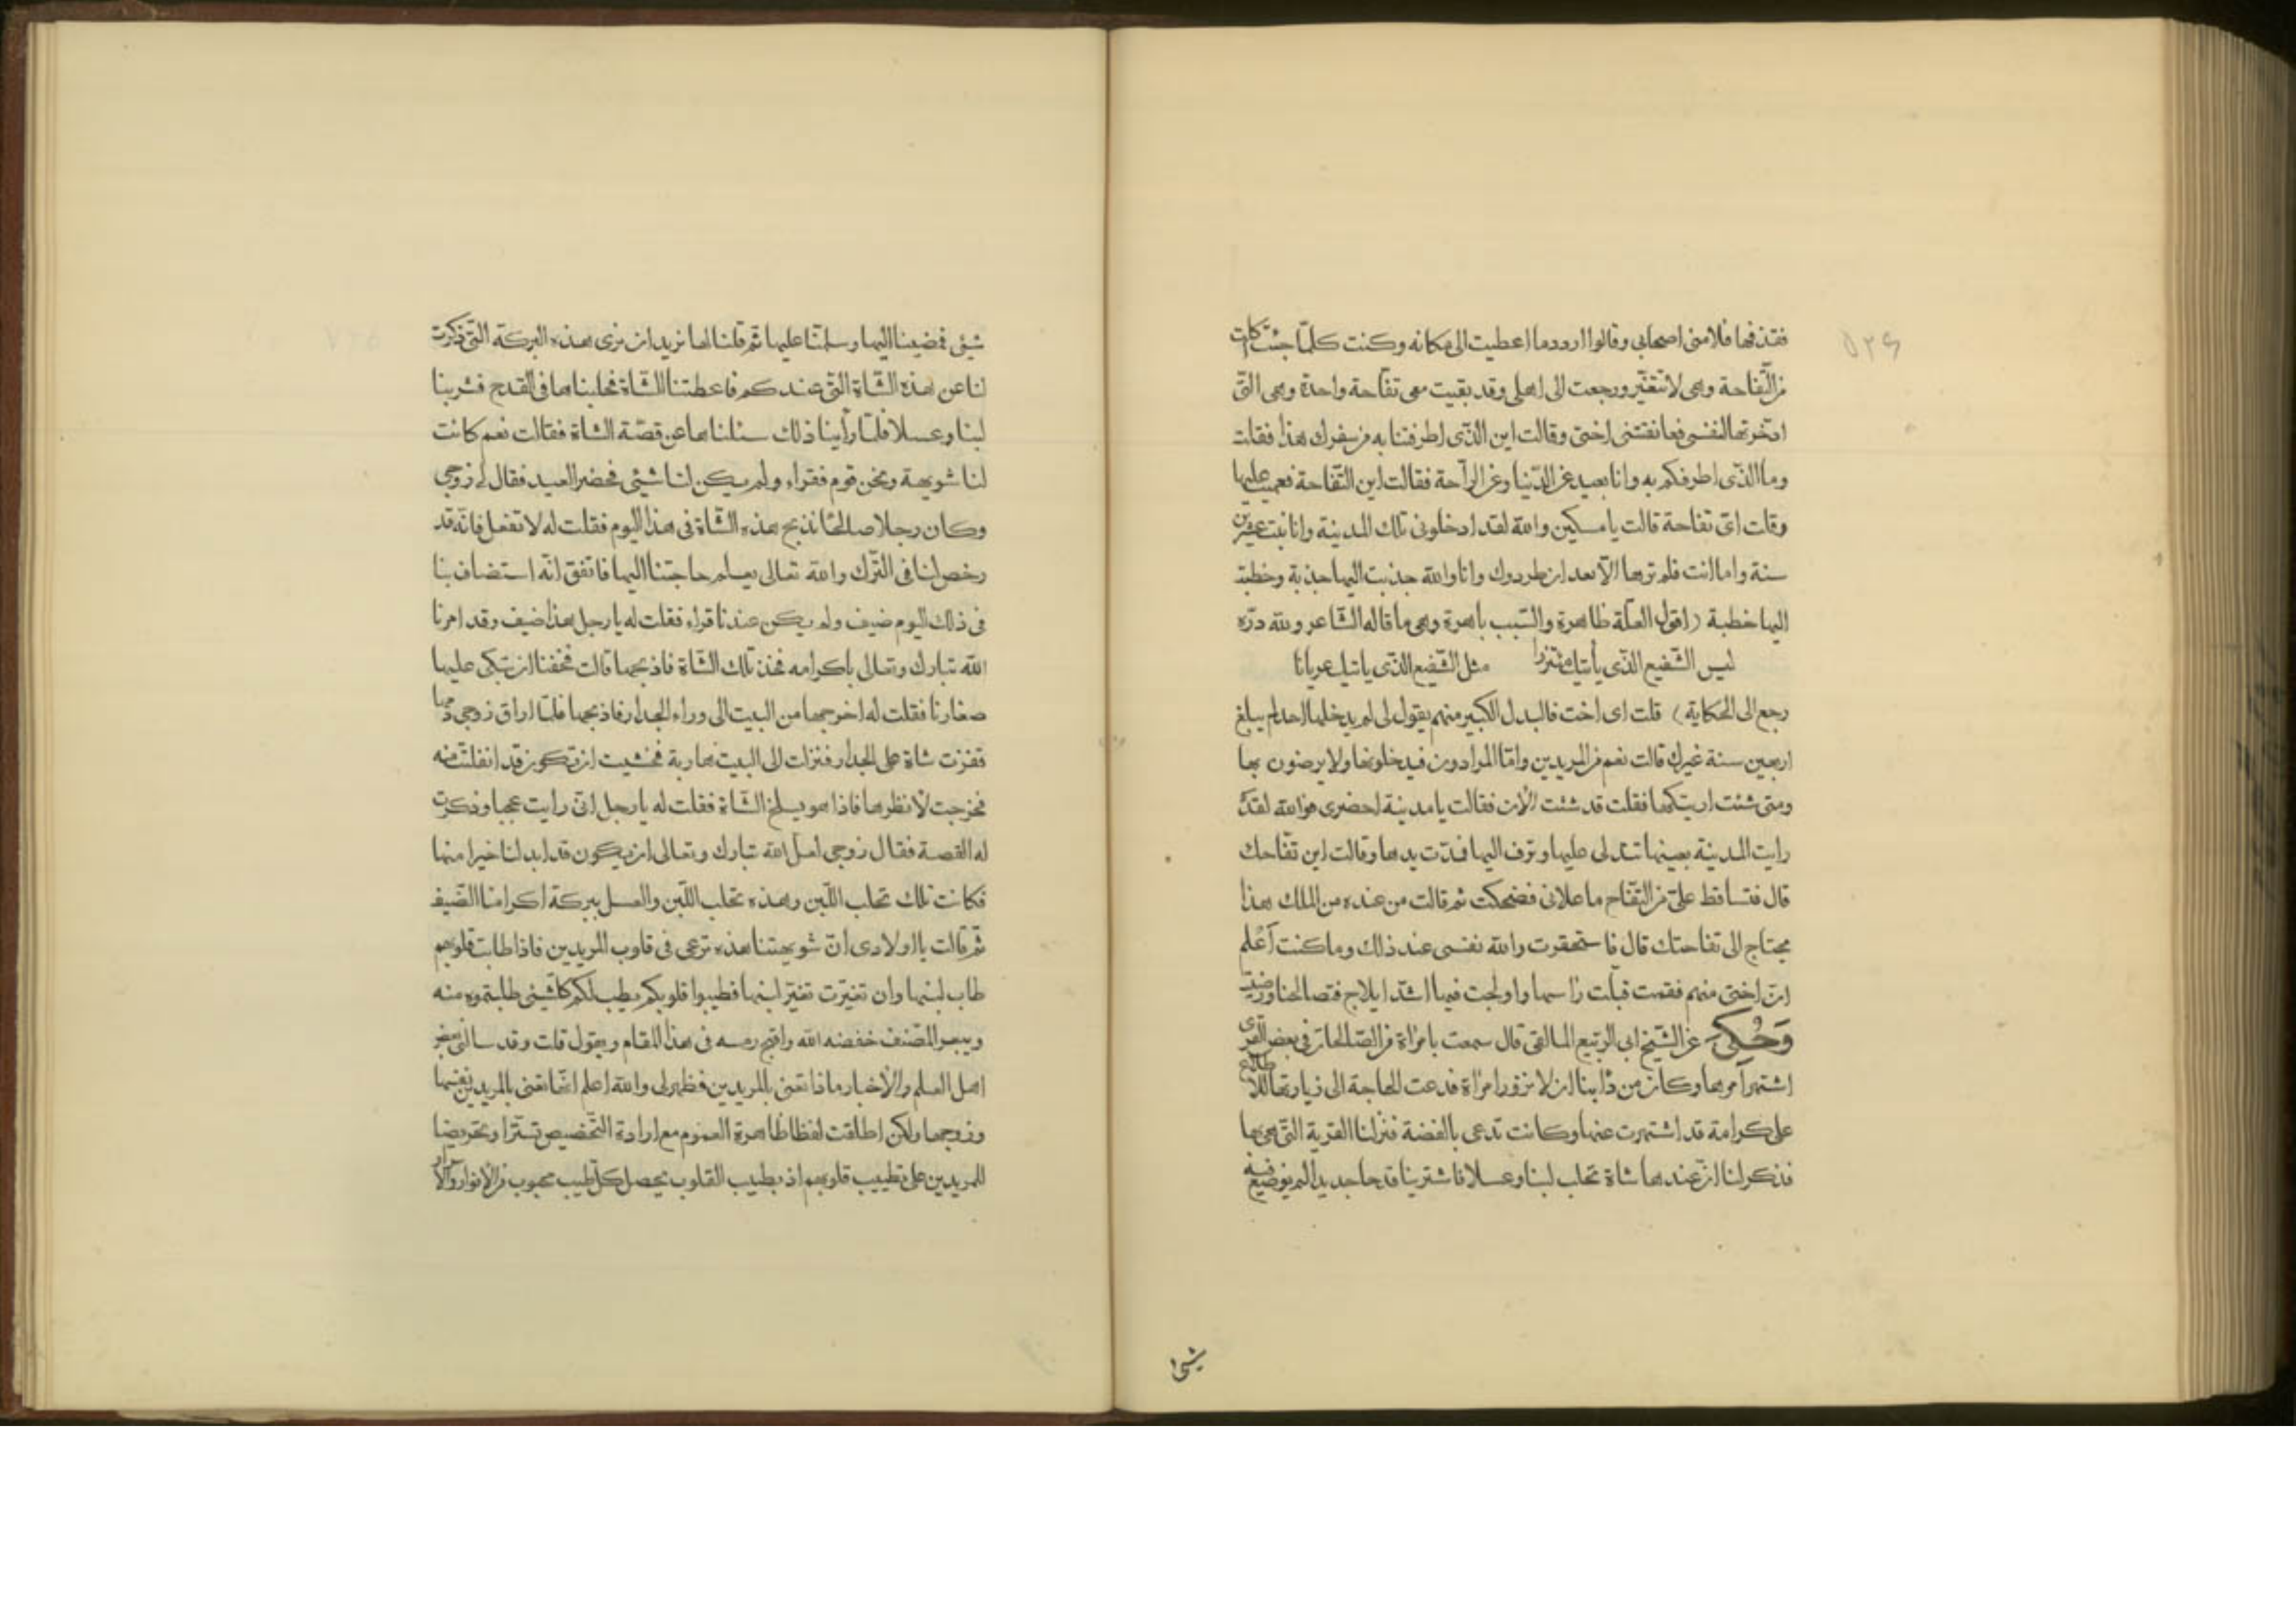 فقذفها فلامنى اصحابى وقالوا اردد ما اعطيت الى مكانه وكنت كلما جئت كلت
من التفاحة وهى لا تتغير ورجعت الى اهلى وقد بقيت معى تفاحة واحدة وهى التى
ادخرتها لنفسى فعانقتنى اختى وقالت اين الذى اطرفتنا به من سفرك هذا فقلت
وما الذى اطرفكم به وانا بعيد عن الدنيا وعن الراحة فقالت اين التفاحة فعميت عليها
وقلت اى تفاحة قالت يا مسكين والله لقد ادخلونى تلك المدينة وانا بنت عشرين
سنة واما انت فلم ترها الا بعد ان طردوك وانا والله جذبت اليها جذبة وخطبت
اليها خطبة (اقول العلة ظاهرة والسبب باهرة وهى ما قاله الشاعر ولله دره
ليس الشفيع الذى يأتيك متزرا مثل الشفيع الذى ياتيك عريانا
رجع الى الحكاية) قلت اى اخت فالبدل الكبير منهم يقول لى لم يدخلها احد لم يبلغ
اربعين سنة غيرك قالت نعم من المريدين واما المرادون فيدخلونها ولا يرضون بها
ومتى شئت اريتكها فقلت قد شئت الآن فقالت يا مدينة احضرى فوالله لقد
رايت المدينة بعينها تتدلى عليها وترف اليها فمدت يدها وقالت اين تفاحك
قال فتساقط على من التفاح ما علانى فضحكت ثم قالت من عنده من الملك هذا
يحتاج الى تفاحتك قال فاستحقرت والله نفسى عند ذلك وما كنت أعلم
ان اختى منهم فقمت قبلت راسها واولجت فيها اشد ايلاج
وحُكى عن الشيخ ابى الربيع المالقى قال سمعت بامراة من الصالحات فى بعض القرى
اشتهر أمرها وكان من دأبنا ان لا نزور امراة فدعت الحاجة الى زيارتها للاطلاع
على كرامة قد اشتهرت عنها وكانت تدعى بالفضة فنزلنا القرية التى هى بها
فذكر لنا ان عندها شاة تحلب لبنا وعسلا فاشترينا قدحا جديدا لم يوضع فيه
شئ
شئ فمضينا اليها وسلمنا عليها ثم قلنا لها نريد ان نرى هذه البركة التى ذكرت
لنا عن هذه الشاة التى عندكم فاعطتنا الشاة فحلبناها فى القدح فشربنا
لبنا وعسلا فلما رأينا ذلك سئلناها عن قصة الشاة فقالت نعم كانت
لنا شويهة ونحن قوم فقراء ولم يكن لنا شيئ فحضر العيد فقال لى زوجى
وكان رجلا صالحا نذبح هذه الشاة فى هذا اليوم فقلت له لا تفعل فانه قد
رخص لنا فى الترك والله تعالى يعلم حاجتنا اليها فاتفق انه استضاف بنا
فى ذلك اليوم ضيف ولم يكن عندنا قراه فقلت له يا رجل هذا ضيف وقد امرنا
الله تبارك وتعالى باكرامه فخذ تلك الشاة فاذبحها قالت فخفنا ان تبكى عليها
صغارنا فقلت له اخرجها من البيت الى وراء الجدار فاذبحها فلما اراق زوجى دمها
قفزت شاة على الجدار فنزلت الى البيت هاربة فخشيت ان تكون قد انفلتت منه
فخرجت لانظرها فاذا هو يسلخ الشاة فقلت له يا رجل انى رايت عجبا وذكرت
له القصة فقال زوجى لعل الله تبارك وتعالى ان يكون قد ابدلنا خيرا منها
فكانت تلك تحلب اللبن وهذه تحلب اللبن والعسل ببركة اكرامنا الضيف
ثم قالت يا اولادى ان شويهتنا هذه ترعى فى قلوب المريدين فاذا طابت قلوبهم
طاب لبنها وان تغيرت تغير لبنها فطيبوا قلوبكم يطب لكم كل شيئ طلبتموه منه
المصنف خفضه الله فى هذا المقام ويقول قلت وقد سالنى بعض
اهل العلم والاخبار ماذا تعنى بالمريدين فظهر لى والله اعلم انما تعنى بالمريدين نفسها
وزوجها ولكن اطلقت لفظا ظاهره العموم مع ارادة التخصيص تسترا وتحريضا
للمريدين على تطييب قلوبهم اذ بطيب القلوب يحصل كل طيب محبوب من الانوار